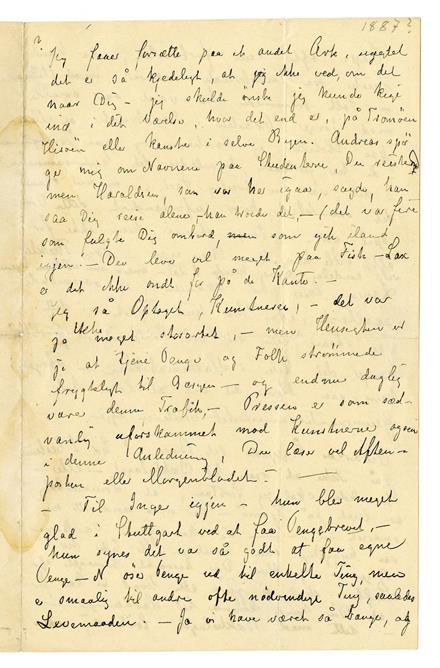 1887?
Jeg faaer fortsætte paa et andet Ark, uagtet
det er så kjedeligt, at jeg ikke ved, om det
naar Dig – jeg skulde ønske jeg kunde kige
ind i dit værelse, hvor det end er, på Tromøen
Hisøen eller kanske i selve Byen. Andreas spør
ger mig om Navnene paa Studenterne, Du reiste
men Haraldsen, som var her igaar, sagde, han
saa Dig reise alene – han troede det, – (det var flere
som fulgte Dig ombord, men som gik iland
igjen. – Du lever vel meget paa Fisk – Lax
er det ikke ondt for på de Kanter. –
Jeg så Optoget, Kunstneren, – det var
jo ikke noget storartet, – men Hensigten er
jo at tjene Penge og Folk strømmede
frygteligt til Bazaren – og endnu daglig
varer denne Trafik. – Pressen er som sæd-
vanlig uforskammet mod Kunstnerne ogsaa
i denne Anledning, Du læser vel Aften-
posten eller Morgenbladet. –
– Til Inger igjen – hun blev meget
glad i Stuttgart ved at faa Pengebrevet, –
hun synes det var så godt at faa egne
Penge – N øser Penge ud til enkelte Ting, men
er smaalig til andre ofte nødvendige Ting, saaledes
Levemaaden. – Ja vi have været så bange, at